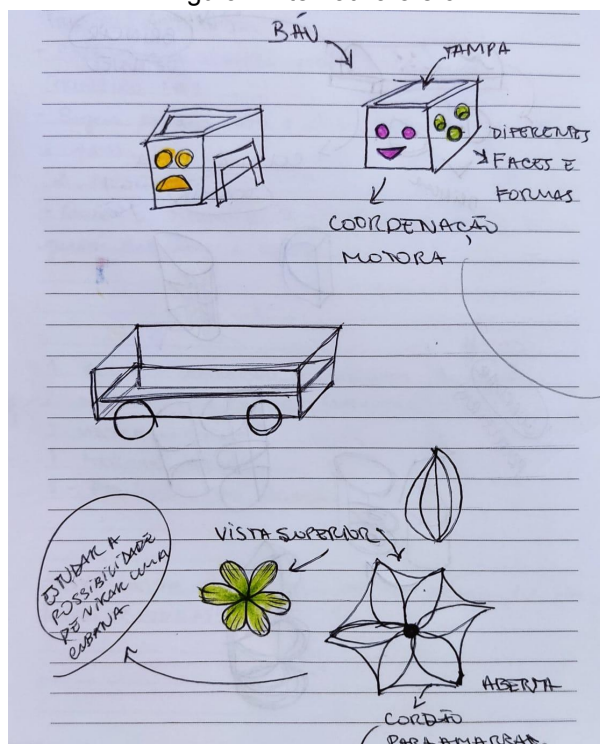 BAÚ
TAMPA
DIFERENTES
FACES E
FORMAS
COORDENAÇÃO
MOTORA
VISTA SUPERIOR
ESTUDAR A
POSSIBILIDADE
DE VIRAR UMA
CABANA
ABERTA
CORDÃO
PARA AMARRAR